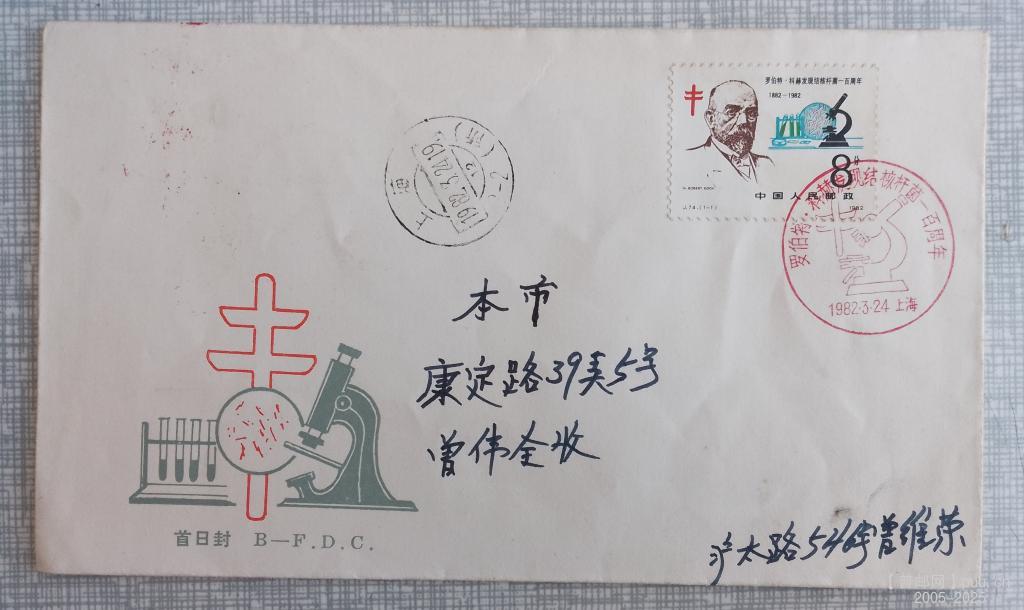 罗伯特·科赫发现结核杆菌一百周年
1882-1982
8分
R. ROBERT KOCH
中国人民邮政
J.74.(1-1)
1982
罗伯特·科赫发现结核杆菌一百周年
1982·3·24 上海
上海
1982.3.24.19
本市
康定路39弄5号
曾伟全收
沪太路546号曾维荣
首日封 B—F.D.C.
2005-2025